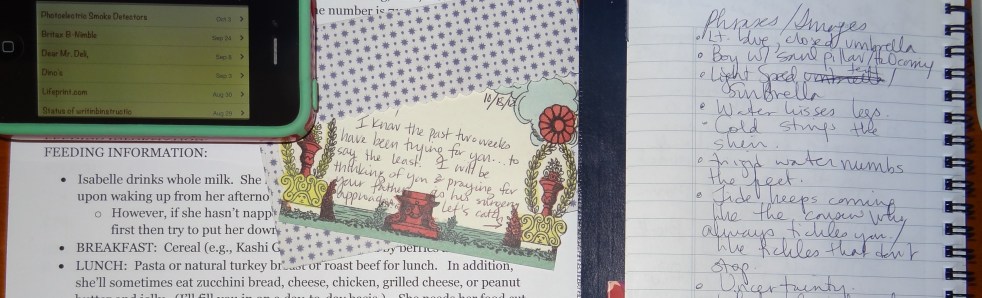 Photoelectric Smoke Detectors Oct 3
Britax B-Nimble Sep 24
Dear Mr. Deli, Sep 5
Dino's Sep 3
Lifeprint.com Aug 30
Status of Aug 29
e number is
FEEDING INFORMATION:
• Isabelle drinks whole milk. She
upon waking up from her afterno
o However, if she hasn't napp
first then try to put her down
• BREAKFAST: Cereal (e.g., Kashi G
y berries
• LUNCH: Pasta or natural turkey breast or roast beef for lunch. In addition,
she'll sometimes eat zucchini bread, cheese, chicken, grilled cheese, or peanut
butter and jelly. (I'll fill you in on a day-to-day basis.) She needs her food cut
10/15/12
I know the past two weeks
have been trying for you... to
say the least! I will be
thinking of you & praying for
your father as his surgery
approaches. Let's catch
Phrases/Images
• Lt. blue, closed umbrella
• Boy w/ sand pillar
• Light Speed
umbrella
• Water kisses legs.
• Cold stings the
shin.
• Frigid water numbs
the feet.
• Tide keeps coming
like the cousin who
always tickles you,
like tickles that don't
stop
• Uncertainty.